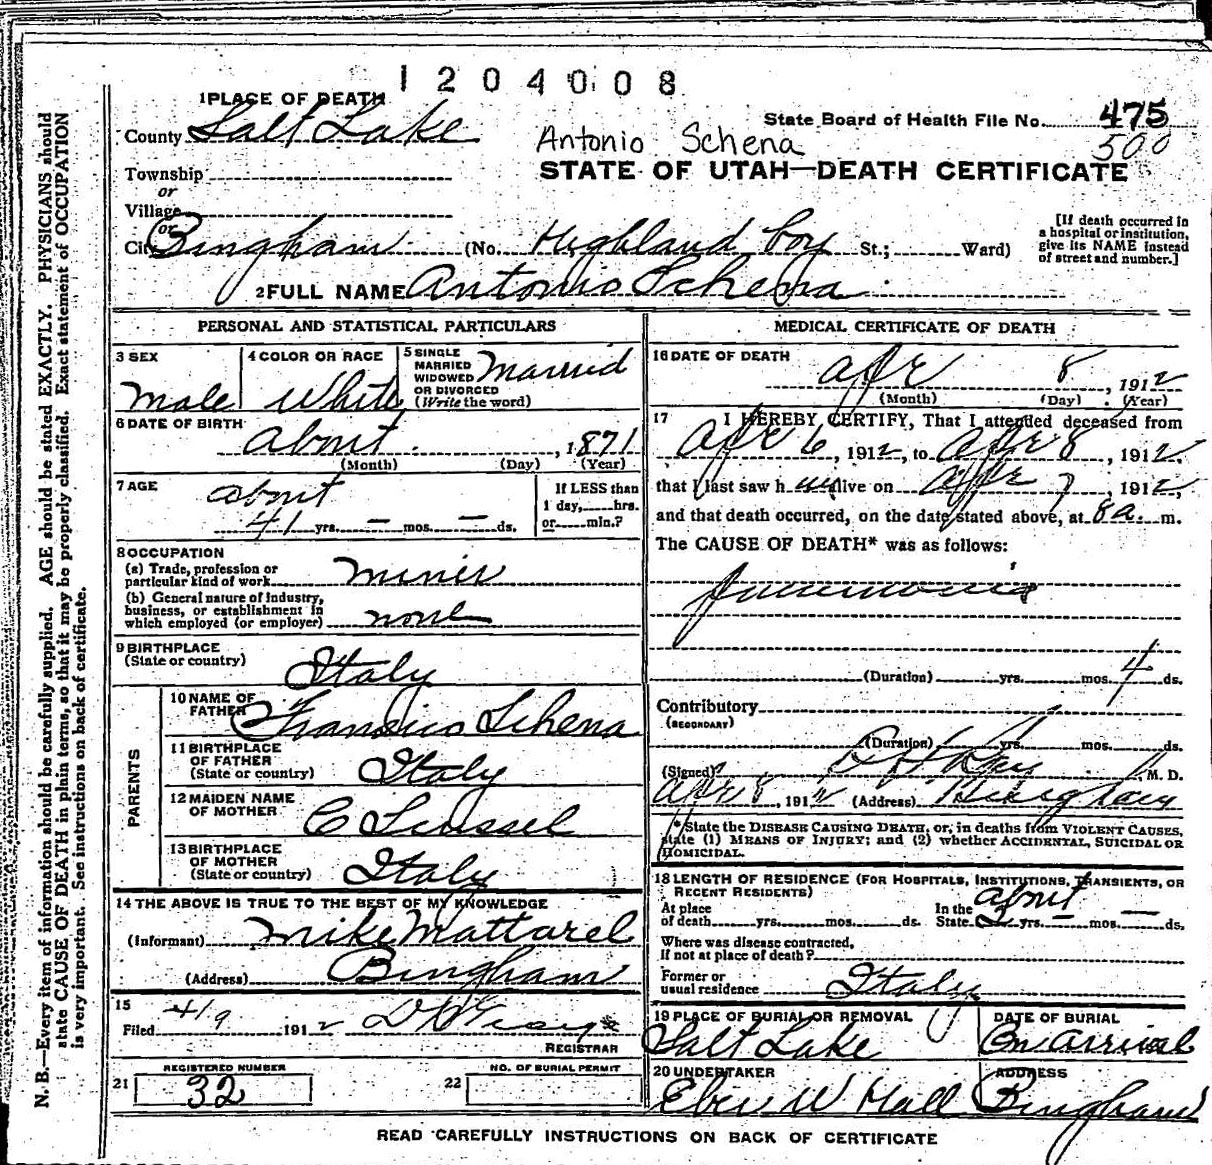 1204008
1 PLACE OF DEATH
County Salt Lake
State Board of Health File No. 475
500
Antonio Schena
STATE OF UTAH—DEATH CERTIFICATE
Township
or
Village
or
City Bingham (No. Highland boy St.; Ward)
[If death occurred in
a hospital or institution,
give its NAME instead
of street and number.]
2 FULL NAME Antonio Schena
PERSONAL AND STATISTICAL PARTICULARS
3 SEX
Male
4 COLOR OR RACE
White
5 SINGLE
MARRIED
WIDOWED
OR DIVORCED
(Write the word)
Married
6 DATE OF BIRTH
about , 1871
(Month) (Day) (Year)
7 AGE
about
41 yrs. — mos. — ds.
If LESS than
1 day, hrs.
or min.?
8 OCCUPATION
(a) Trade, profession or
particular kind of work miner
(b) General nature of industry,
business, or establishment in
which employed (or employer) none
9 BIRTHPLACE
(State or country) Italy
PARENTS
10 NAME OF
FATHER Francisco Schena
11 BIRTHPLACE
OF FATHER
(State or country) Italy
12 MAIDEN NAME
OF MOTHER C
13 BIRTHPLACE
OF MOTHER
(State or country) Italy
14 THE ABOVE IS TRUE TO THE BEST OF MY KNOWLEDGE
(Informant) Mike Mattarel
(Address) Bingham
15
Filed 4/9 1912
REGISTRAR
REGISTERED NUMBER
21 32
NO. OF BURIAL PERMIT
22
MEDICAL CERTIFICATE OF DEATH
16 DATE OF DEATH
Apr 8, 1912
(Month) (Day) (Year)
17 I HEREBY CERTIFY, That I attended deceased from
Apr 6, 1912, to Apr 8, 1912,
that I last saw h im alive on Apr 7, 1912,
and that death occurred, on the date stated above, at 8 a. m.
The CAUSE OF DEATH* was as follows:
Pneumonia
(Duration) yrs. mos. 4 ds.
Contributory
(SECONDARY)
(Duration) yrs. mos. ds.
(Signed) M. D.
Apr 8, 1912 (Address) Bingham
*State the DISEASE CAUSING DEATH, or, in deaths from VIOLENT CAUSES,
state (1) MEANS OF INJURY; and (2) whether ACCIDENTAL, SUICIDAL OR
HOMICIDAL.
18 LENGTH OF RESIDENCE (FOR HOSPITALS, INSTITUTIONS, TRANSIENTS, OR
RECENT RESIDENTS)
about
At place
of death yrs. mos. ds.
In the
State 2 yrs. — mos. — ds.
Where was disease contracted,
If not at place of death?
Former or
usual residence Italy
19 PLACE OF BURIAL OR REMOVAL
Salt Lake
DATE OF BURIAL
On arrival
20 UNDERTAKER
Eber W Hall
ADDRESS
Bingham
READ CAREFULLY INSTRUCTIONS ON BACK OF CERTIFICATE
N. B.—Every item of information should be carefully supplied. AGE should be stated EXACTLY. PHYSICIANS should
state CAUSE OF DEATH in plain terms, so that it may be properly classified. Exact statement of OCCUPATION
is very important. See instructions on back of certificate.